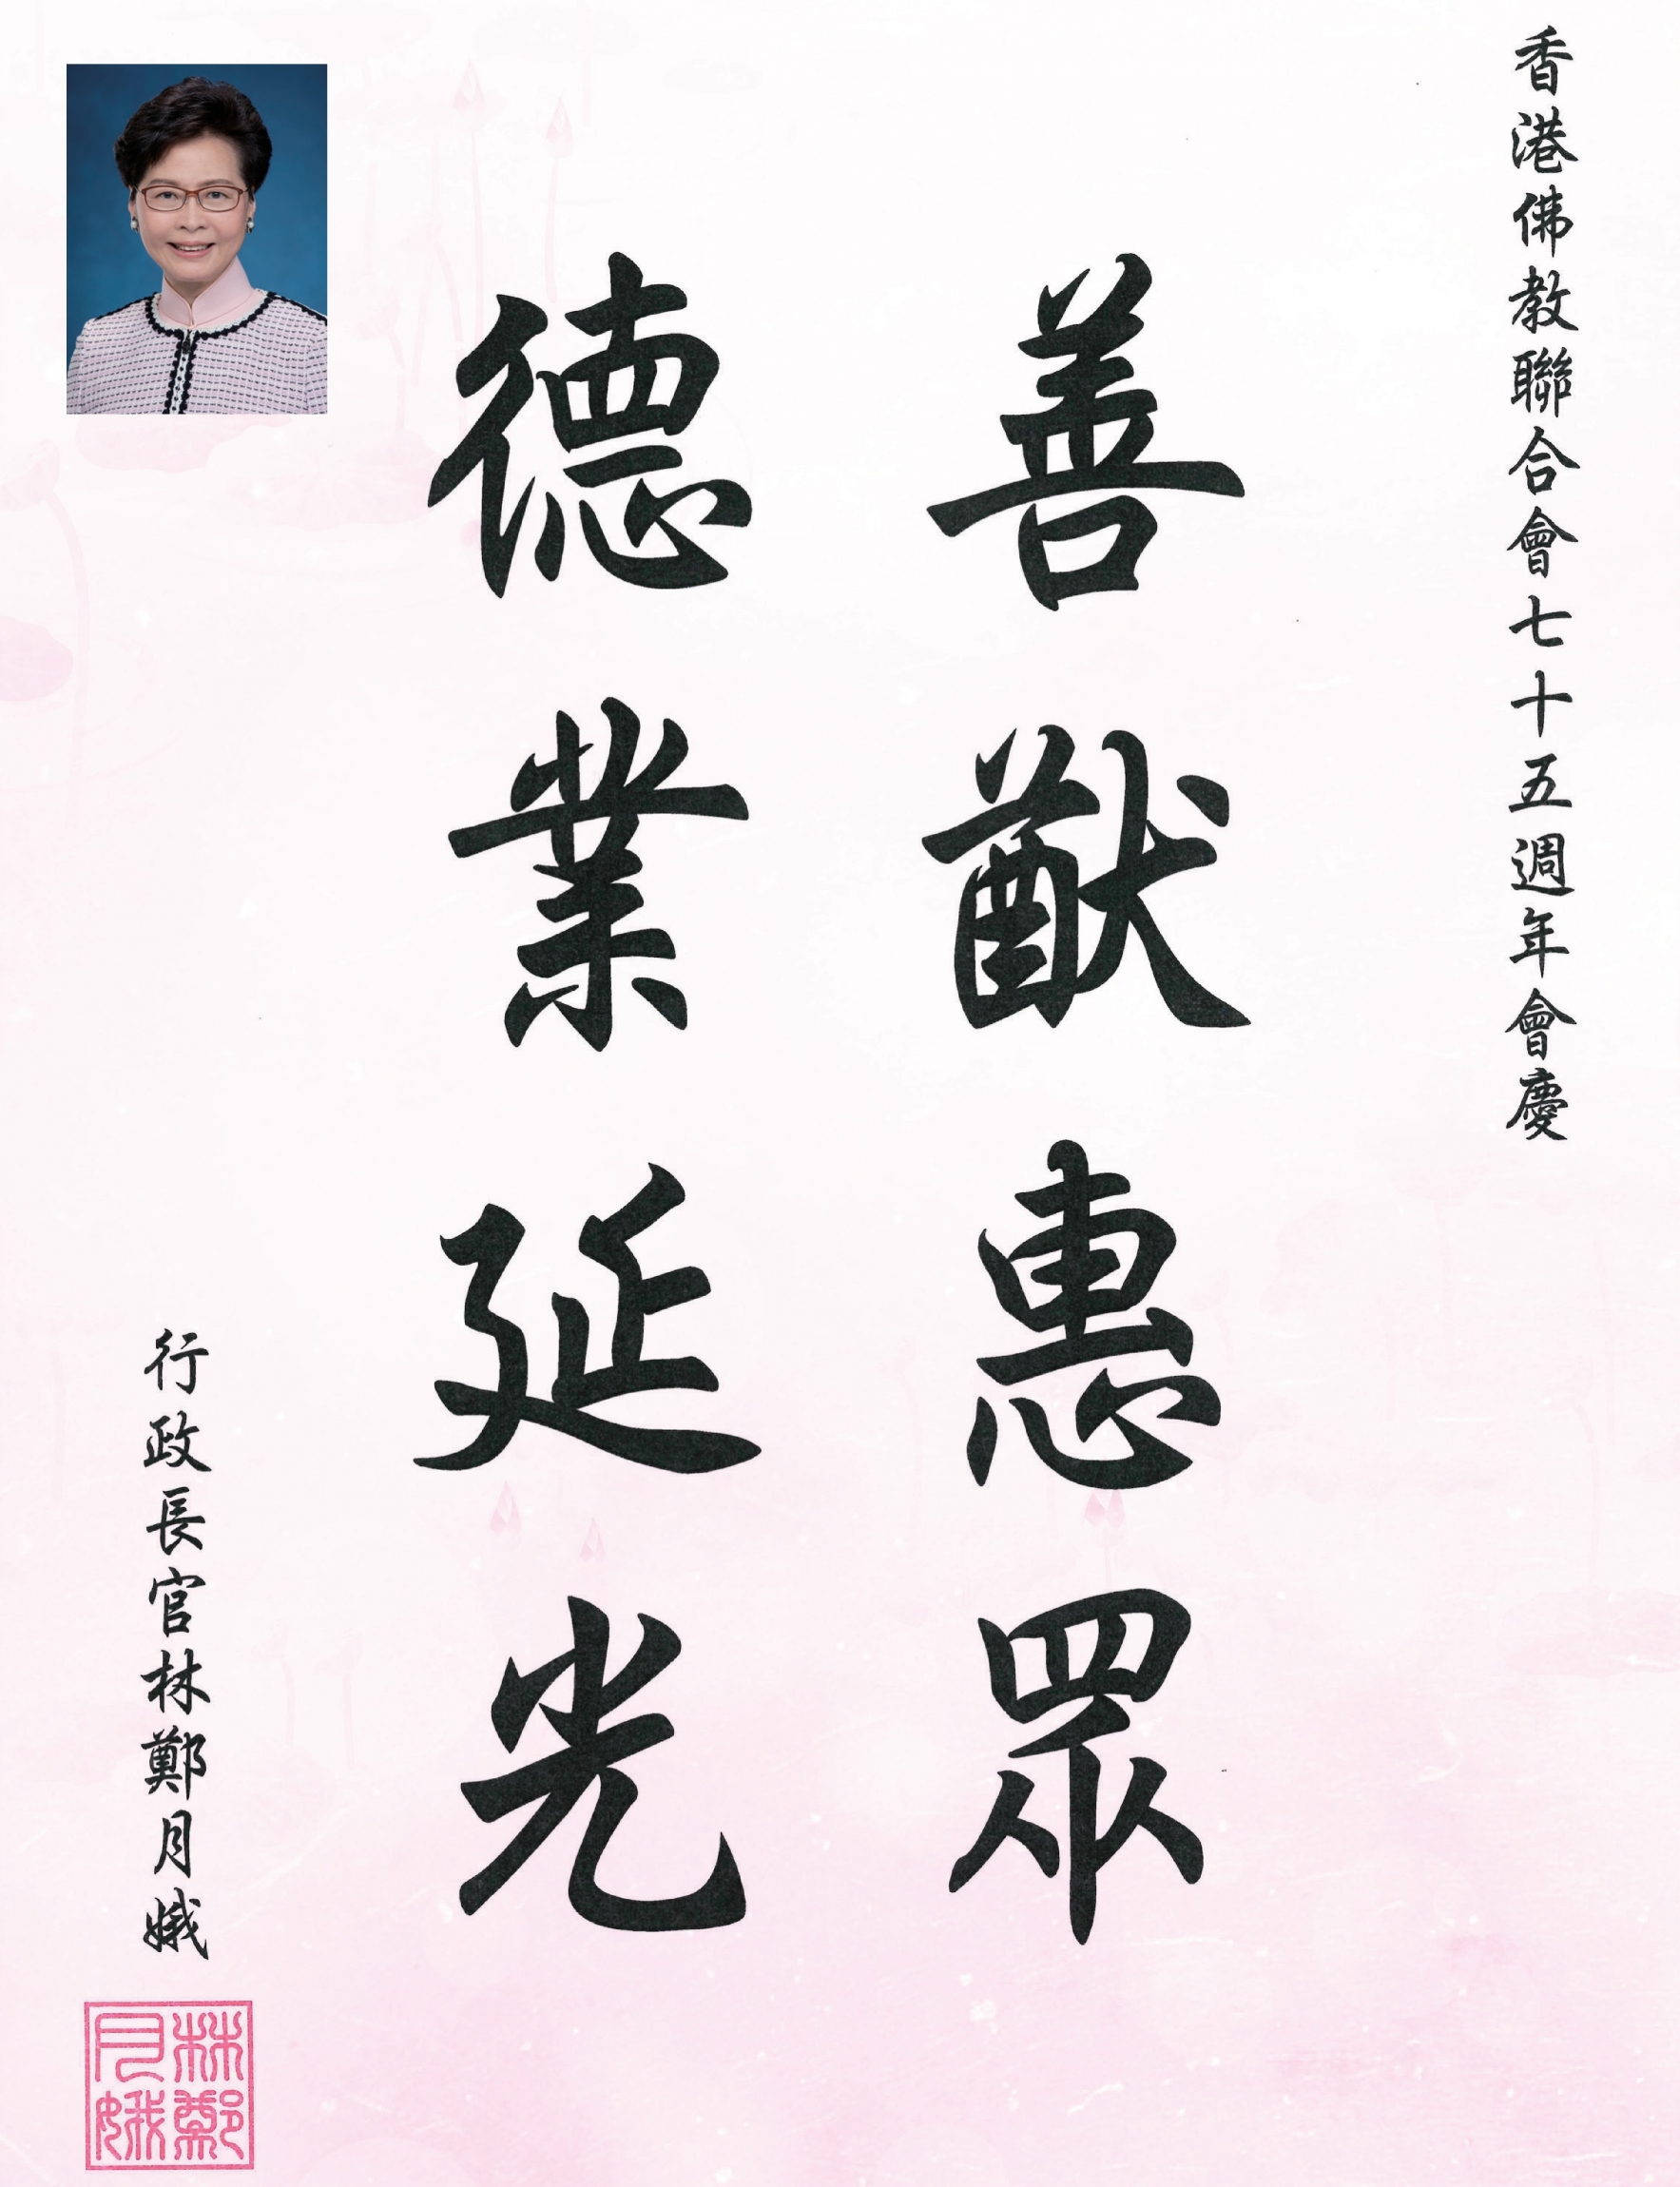 香港佛教聯合會七十五週年會慶
善猷惠眾
德業延光
行政長官林鄭月娥
林鄭
月娥